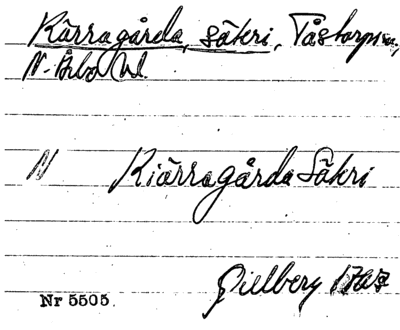 Kärragårda, säteri, Tåstarps sn,
N. Åsbo hd.
N Kiärragårda Säteri
Gillberg 1767
Nr 5505.